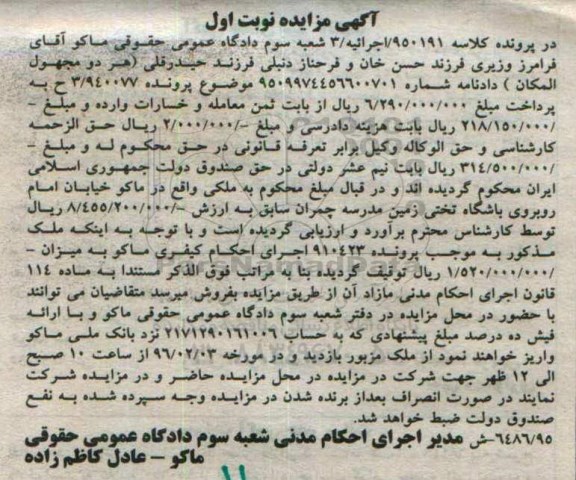 آگهی مزایده نوبت اول
در پرونده کلاسه ۹۵۰۱۹۱/اجرائیه/۳ شعبه سوم دادگاه عمومی حقوقی ماکو آقای
فرامرز وزیری فرزند حسن خان و فرحناز دنبلی فرزند حیدرقلی (هر دو مجهول
المکان ) دادنامه شماره ۹۵۰۹۹۷۴۴۵۶۶۰۰۷۰۱ موضوع پرونده ۳/۹۴۰۰۷۷ ح به
پرداخت مبلغ ۶/۲۹۰/۰۰۰/۰۰۰ ریال از بابت ثمن معامله و خسارات وارده و مبلغ -
/۲۱۸/۱۵۰/۰۰۰ ریال بابت هزینه دادرسی و مبلغ -/۲/۰۰۰/۰۰۰ ریال حق الزحمه
کارشناسی و حق الوکاله وکیل برابر تعرفه قانونی در حق محکوم له و مبلغ -
/۳۱۴/۵۰۰/۰۰۰ ریال بابت نیم عشر دولتی در حق صندوق دولت جمهوری اسلامی
ایران محکوم گردیده اند و در قبال مبلغ محکوم به ملکی واقع در ماکو خیابان امام
روبروی باشگاه تختی زمین مدرسه چمران سابق به ارزش -/۸/۴۵۵/۲۰۰/۰۰۰ ریال
توسط کارشناس محترم برآورد و ارزیابی گردیده است و با توجه به اینکه ملک
مذکور به موجب پرونده ۹۱۰۴۲۳ اجرای احکام کیفری ماکو به میزان -
/۱/۵۲۰/۰۰۰/۰۰۰ ریال توقیف گردیده بنا به مراتب فوق الذکر مستندا به ماده ۱۱۴
قانون اجرای احکام مدنی مازاد آن از طریق مزایده بفروش میرسد متقاضیان می توانند
با حضور در محل مزایده در دفتر شعبه سوم دادگاه عمومی حقوقی ماکو و با ارائه
فیش ده درصد مبلغ پیشنهادی که به حساب ۲۱۷۱۲۹۰۱۶۱۰۰۶ نزد بانک ملی ماکو
واریز خواهند نمود از ملک مزبور بازدید و در مورخه ۹۶/۰۲/۰۳ از ساعت ۱۰ صبح
الی ۱۲ ظهر جهت شرکت در مزایده در محل مزایده حاضر و در مزایده شرکت
نمایند در صورت انصراف بعداز برنده شدن در مزایده وجه سپرده شده به نفع
صندوق دولت ضبط خواهد شد.
۶۴۸۶/۹۵-ش مدیر اجرای احکام مدنی شعبه سوم دادگاه عمومی حقوقی
ماکو - عادل کاظم زاده